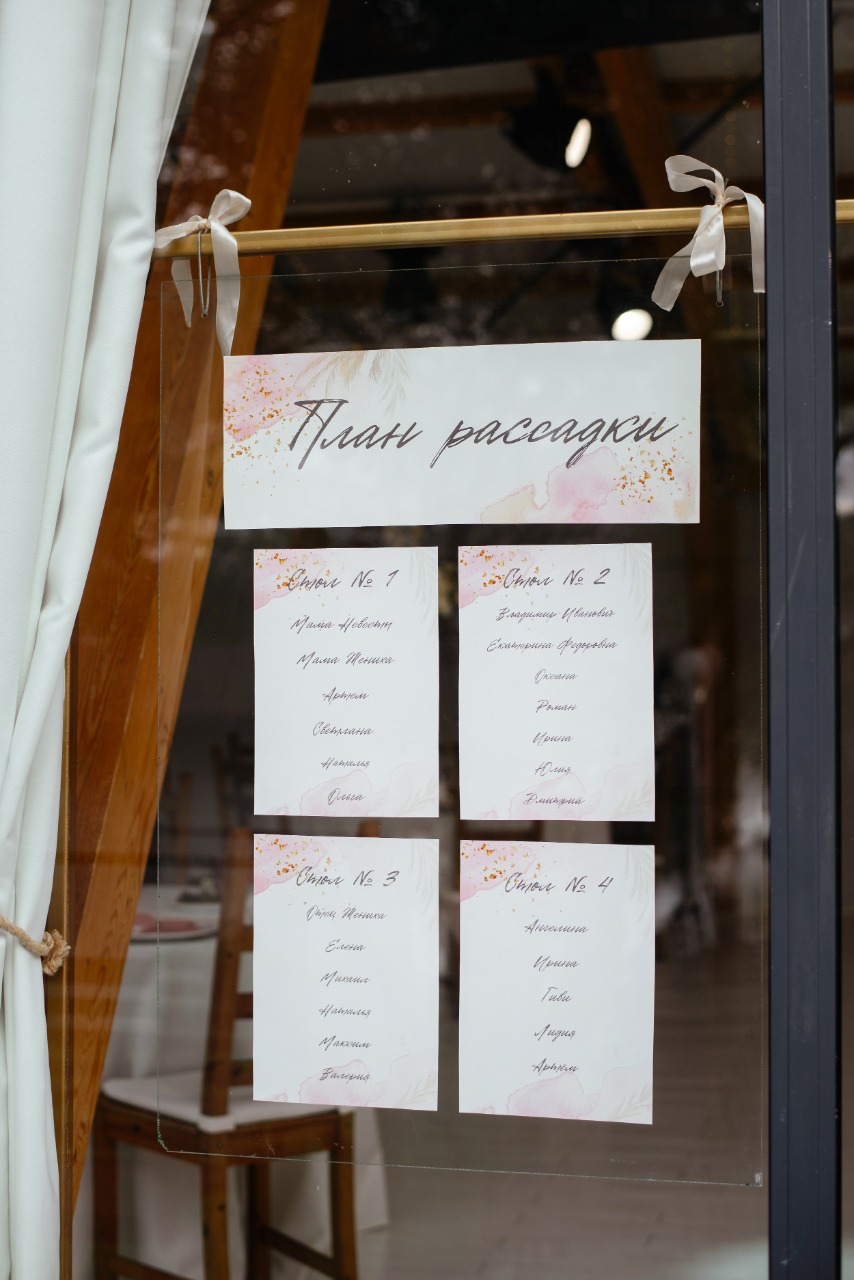 План рассадки
Стол № 1
Мама Невесты
Мама Жениха
Артем
Светлана
Наталья
Ольга
Стол № 2
Владимир Иванович
Екатерина Федоровна
Оксана
Роман
Ирина
Юлия
Дмитрий
Стол № 3
Отец Жениха
Елена
Михаил
Наталья
Максим
Валерия
Стол № 4
Ангелина
Ирина
Гиви
Лидия
Артем